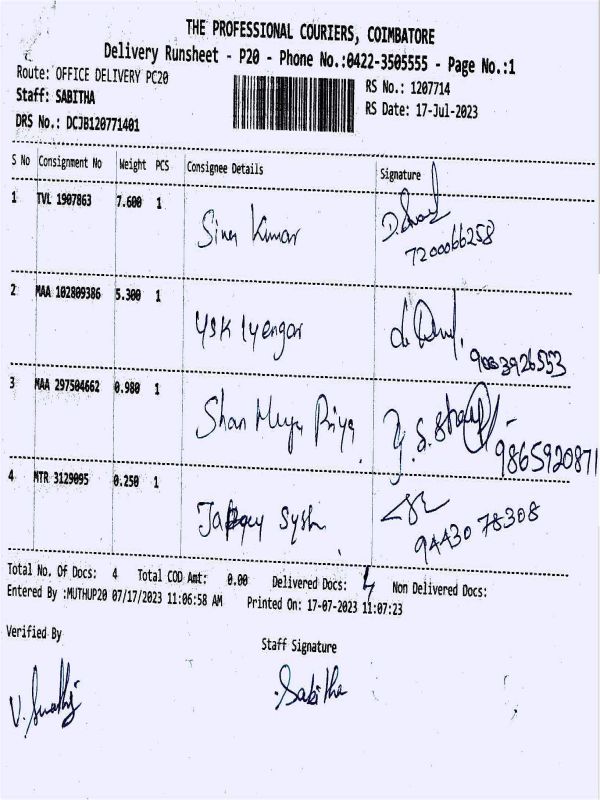 THE PROFESSIONAL COURIERS, COIMBATORE
Delivery Runsheet - P20 - Phone No.:0422-3505555 - Page No.:1
Route: OFFICE DELIVERY PC20 RS No.: 1207714
Staff: SABITHA RS Date: 17-Jul-2023
DRS No.: DCJB120771401
S No Consignment No Weight PCS Consignee Details Signature
1 TVL 1907863 7.600 1
Siva Kumar
7200066258
2 MAA 102809386 5.300 1
YSK Iyengar
9083926553
3 MAA 297504662 0.980 1
Shan Muga Priya
9865920871
4 MTR 3129095 0.250 1
94430 78308
Total No. Of Docs: 4 Total COD Amt: 0.00 Delivered Docs: 4 Non Delivered Docs:
Entered By :MUTHUP20 07/17/2023 11:06:58 AM Printed On: 17-07-2023 11:07:23
Verified By Staff Signature
V. Swathi Sabitha